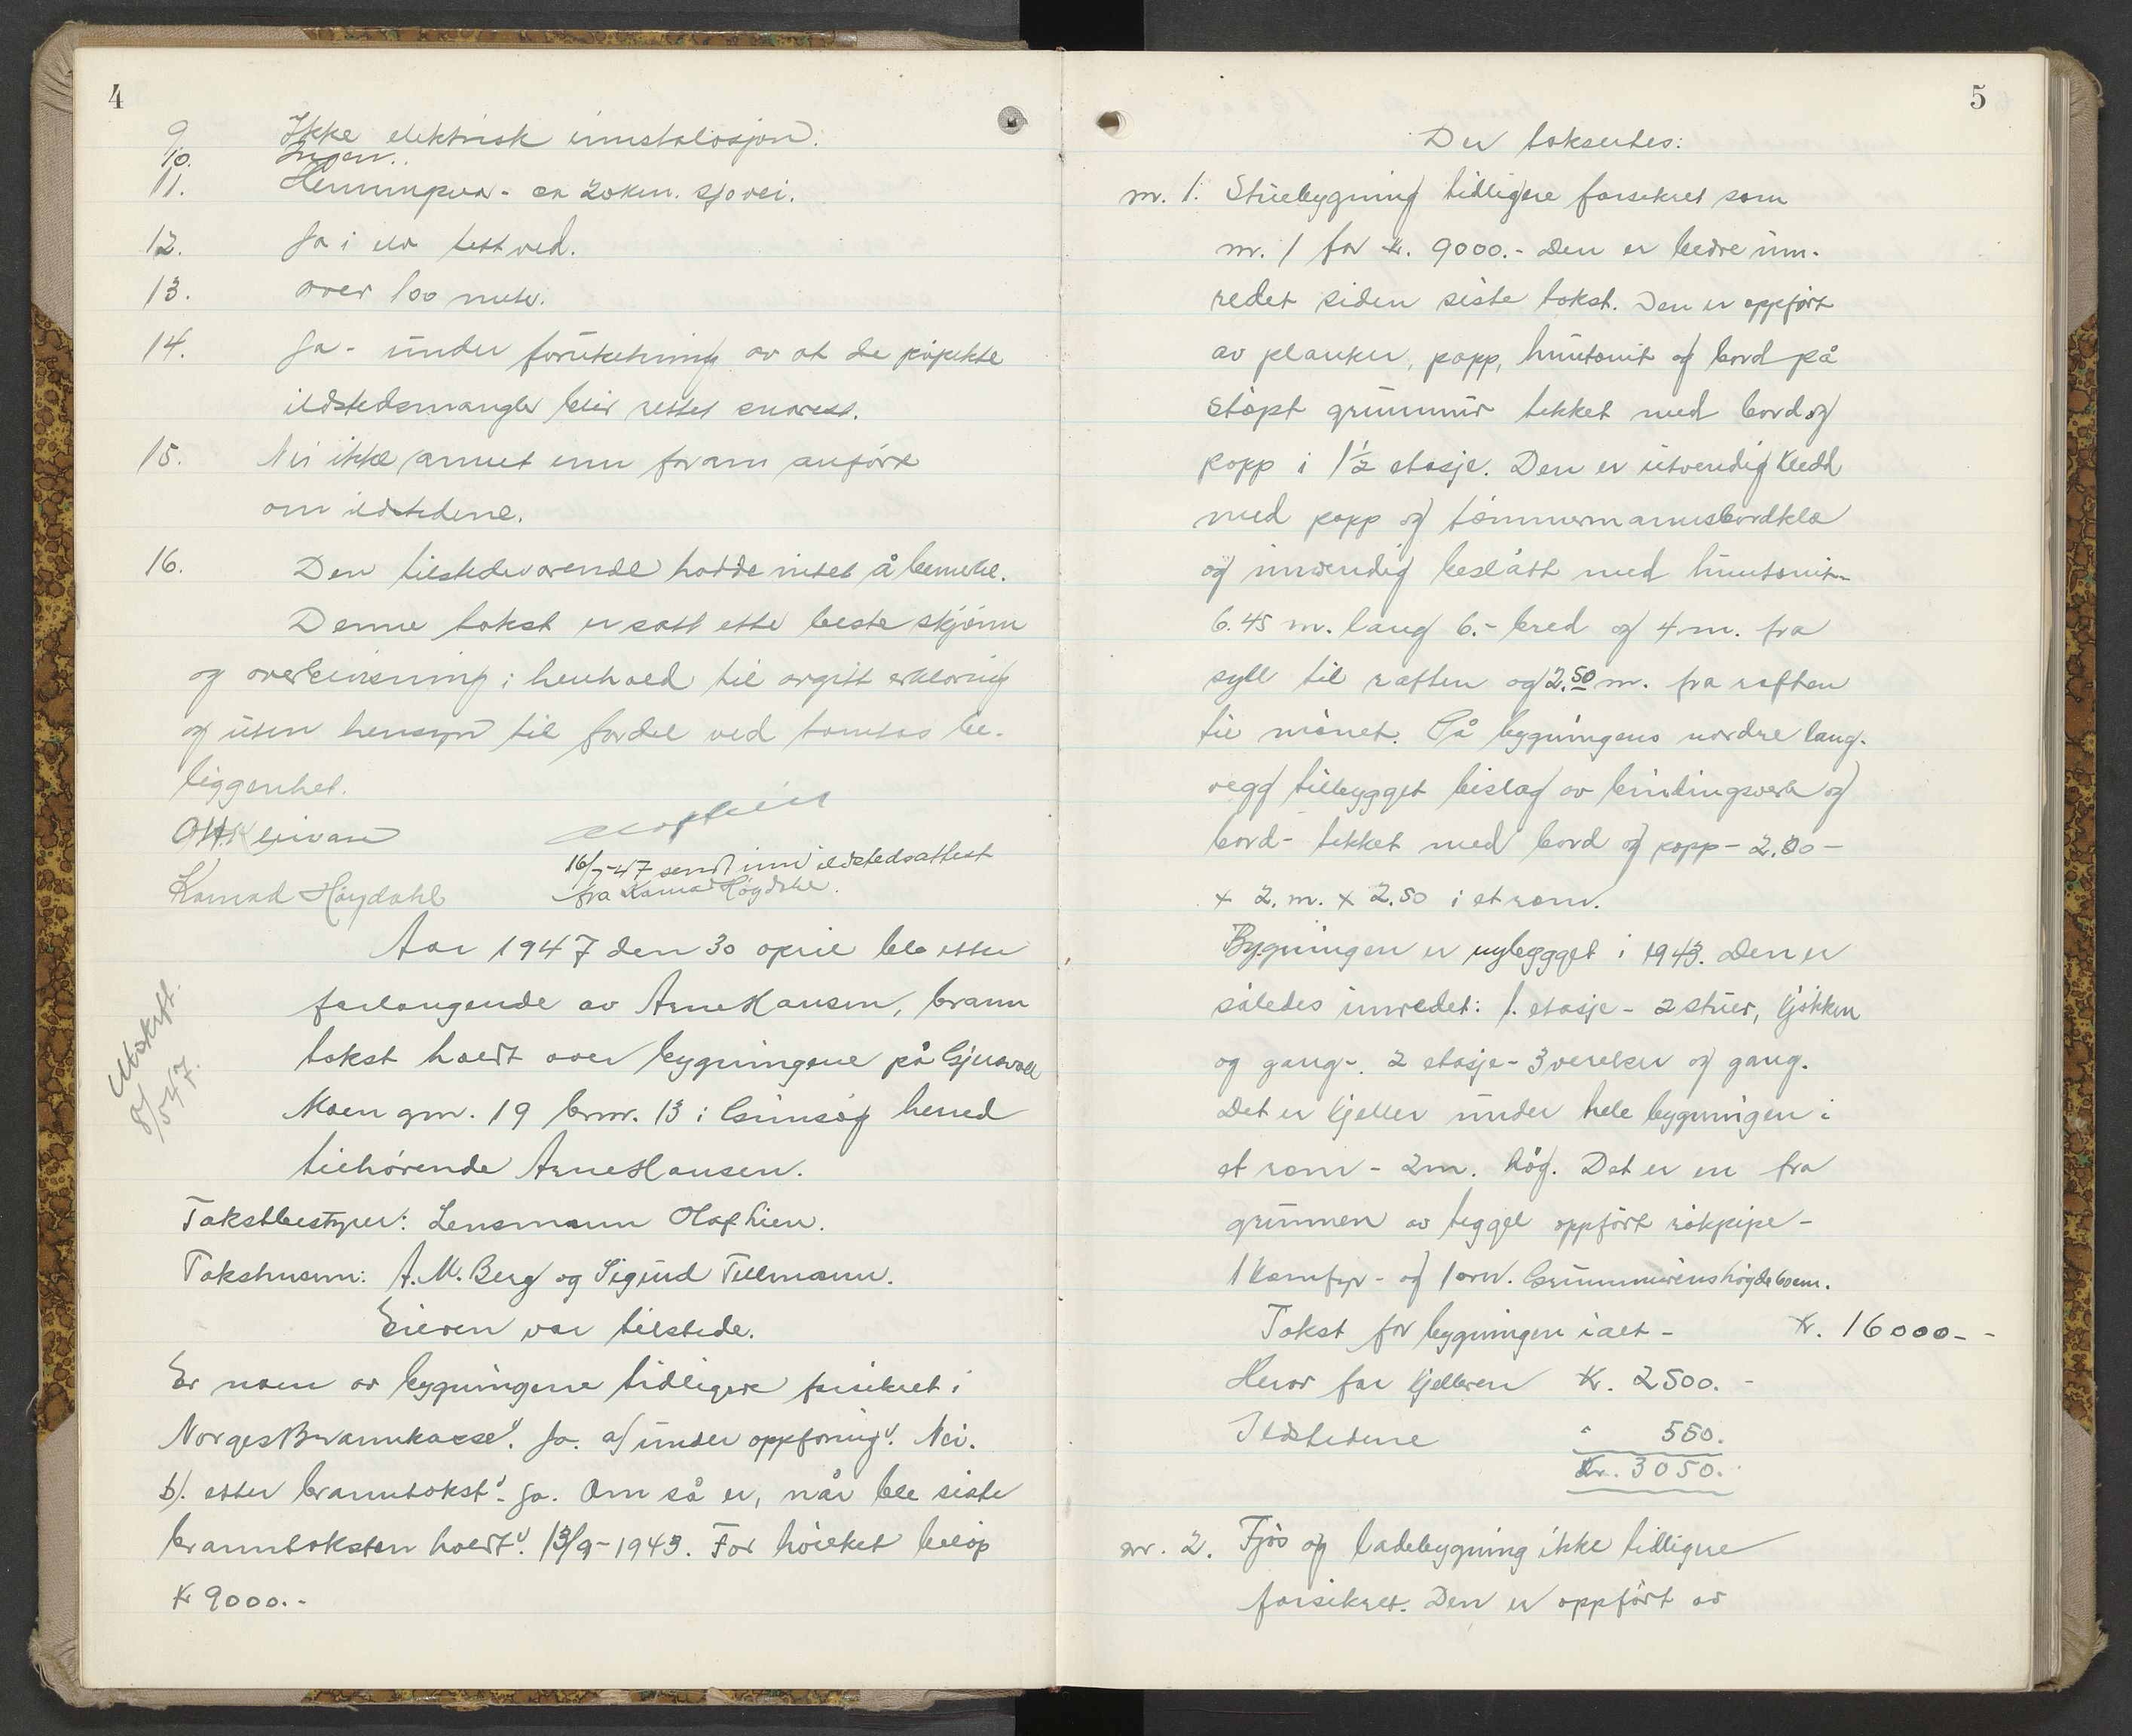 4
9. Ikke elektrisk innstalasjon.
10. Ingen.
11. Henningsvær - ca 20 km. sjøvei.
12. Ja i elv tett ved.
13. over 100 meter.
14. Ja - under forutsetning av at de påpekte
ildstedsmangler blir rettet snarest.
15. Nei ikke annet enn foran anført
om ildstedene.
16. Den tilstedeværende hadde intet å bemerke.
Denne takst er satt etter beste skjønn
og overbevisning i henhold til avgitt erklæring
og uten hensyn til fordel ved tomtas be-
liggenhet.
Olaf Lien
16/7-47 sendt inn ildstedsattest
fra Konrad Høydahl.
Konrad Høydahl
Aar 1947 den 30 april ble etter
forlangende av Arne Hansen, brann
takst holdt over bygningene på
Moen gnr. 19 brnr. 13 i Gimsøy herred
tilhørende Arne Hansen.
Utskrift.
8/5 47.
Takstbestyrer: Lensmann Olaf Lien.
Takstmenn: A. M. Berg og Sigurd Tillmann.
Eieren var tilstede.
Er noen av bygningene tidligere forsikret i
Norges Brannkasse? Ja. a/ under oppføring? Nei.
b/. etter branntakst? Ja. Om så er, når ble siste
branntaksten holdt? 13/9-1943. For hvilket beløp
Kr 9000.-
5
Der taksertes:
nr. 1. Stuebygning tidligere forsikret som
nr. 1 for Kr. 9000.- Den er bedre inn-
redet siden siste takst. Den er oppført
av planker, papp, huntonit og bord på
støpt grunnmur tekket med bord og
papp i 1½ etasje. Den er utvendig kledd
med papp og tømmermannsbordkle
og innvendig beslått med huntonit -
6.45 m. lang 6.- bred og 4 m. fra
syll til raften og 2.50 m. fra raften
til mønet. På bygningens nordre lang-
vegg tilbygget bislag av bindingsverk og
bord - tekket med bord og papp - 2.80 -
x 2. m. x 2.50 i et rom.
Bygningen er nybygget i 1943. Den er
således innredet: 1. etasje - 2 stuer, kjøkken
og gang -. 2 etasje - 3 værelser og gang.
Det er kjeller under hele bygningen i
et rom - 2m. høg. Det er en fra
grunnen av teggel oppført røkpipe -
1 komfyr - og 1 ovn. Grunnmurens høgde
Takst for bygningen i alt - Kr. 16000.--
Herav for kjelleren Kr. 2500.-
Ildstedene " 550.
Kr. 3050.-
nr. 2. Fjøs og ladebygning ikke tidligere
forsikret. Den er oppført av